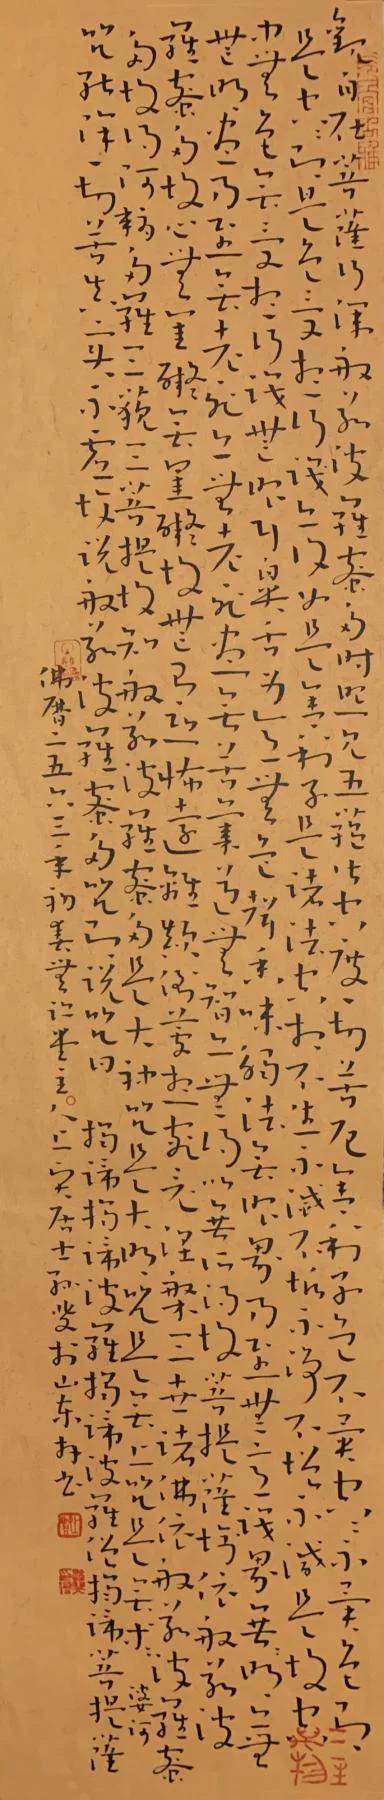 觀自在菩薩行深般若波羅蜜多時照見五蘊皆空度一切苦厄舍利子色不異空〻不異色即
是空〻即是色受想行識亦復如是舍利子是諸法空相不生不滅不垢不淨不增不減是故空
中無色無受想行識無眼耳鼻舌身意無色聲香味觸法無眼界乃至無意識界無無明亦無
無明盡乃至無老死亦無老死盡無苦集滅道無智亦無得以無所得故菩提薩埵依般若波
羅蜜多故心無罣礙無罣礙故無有恐怖遠離顛倒夢想究竟涅槃三世諸佛依般若波羅蜜
多故得阿耨多羅三藐三菩提故知般若波羅蜜多是大神咒是大明咒是無上咒是無等〻
咒能除一切苦真實不虛故說般若波羅蜜多咒即說咒曰 揭諦揭諦波羅揭諦波羅僧揭諦菩提薩
婆訶
佛曆二五六三年初春無堂主居士孫於山東